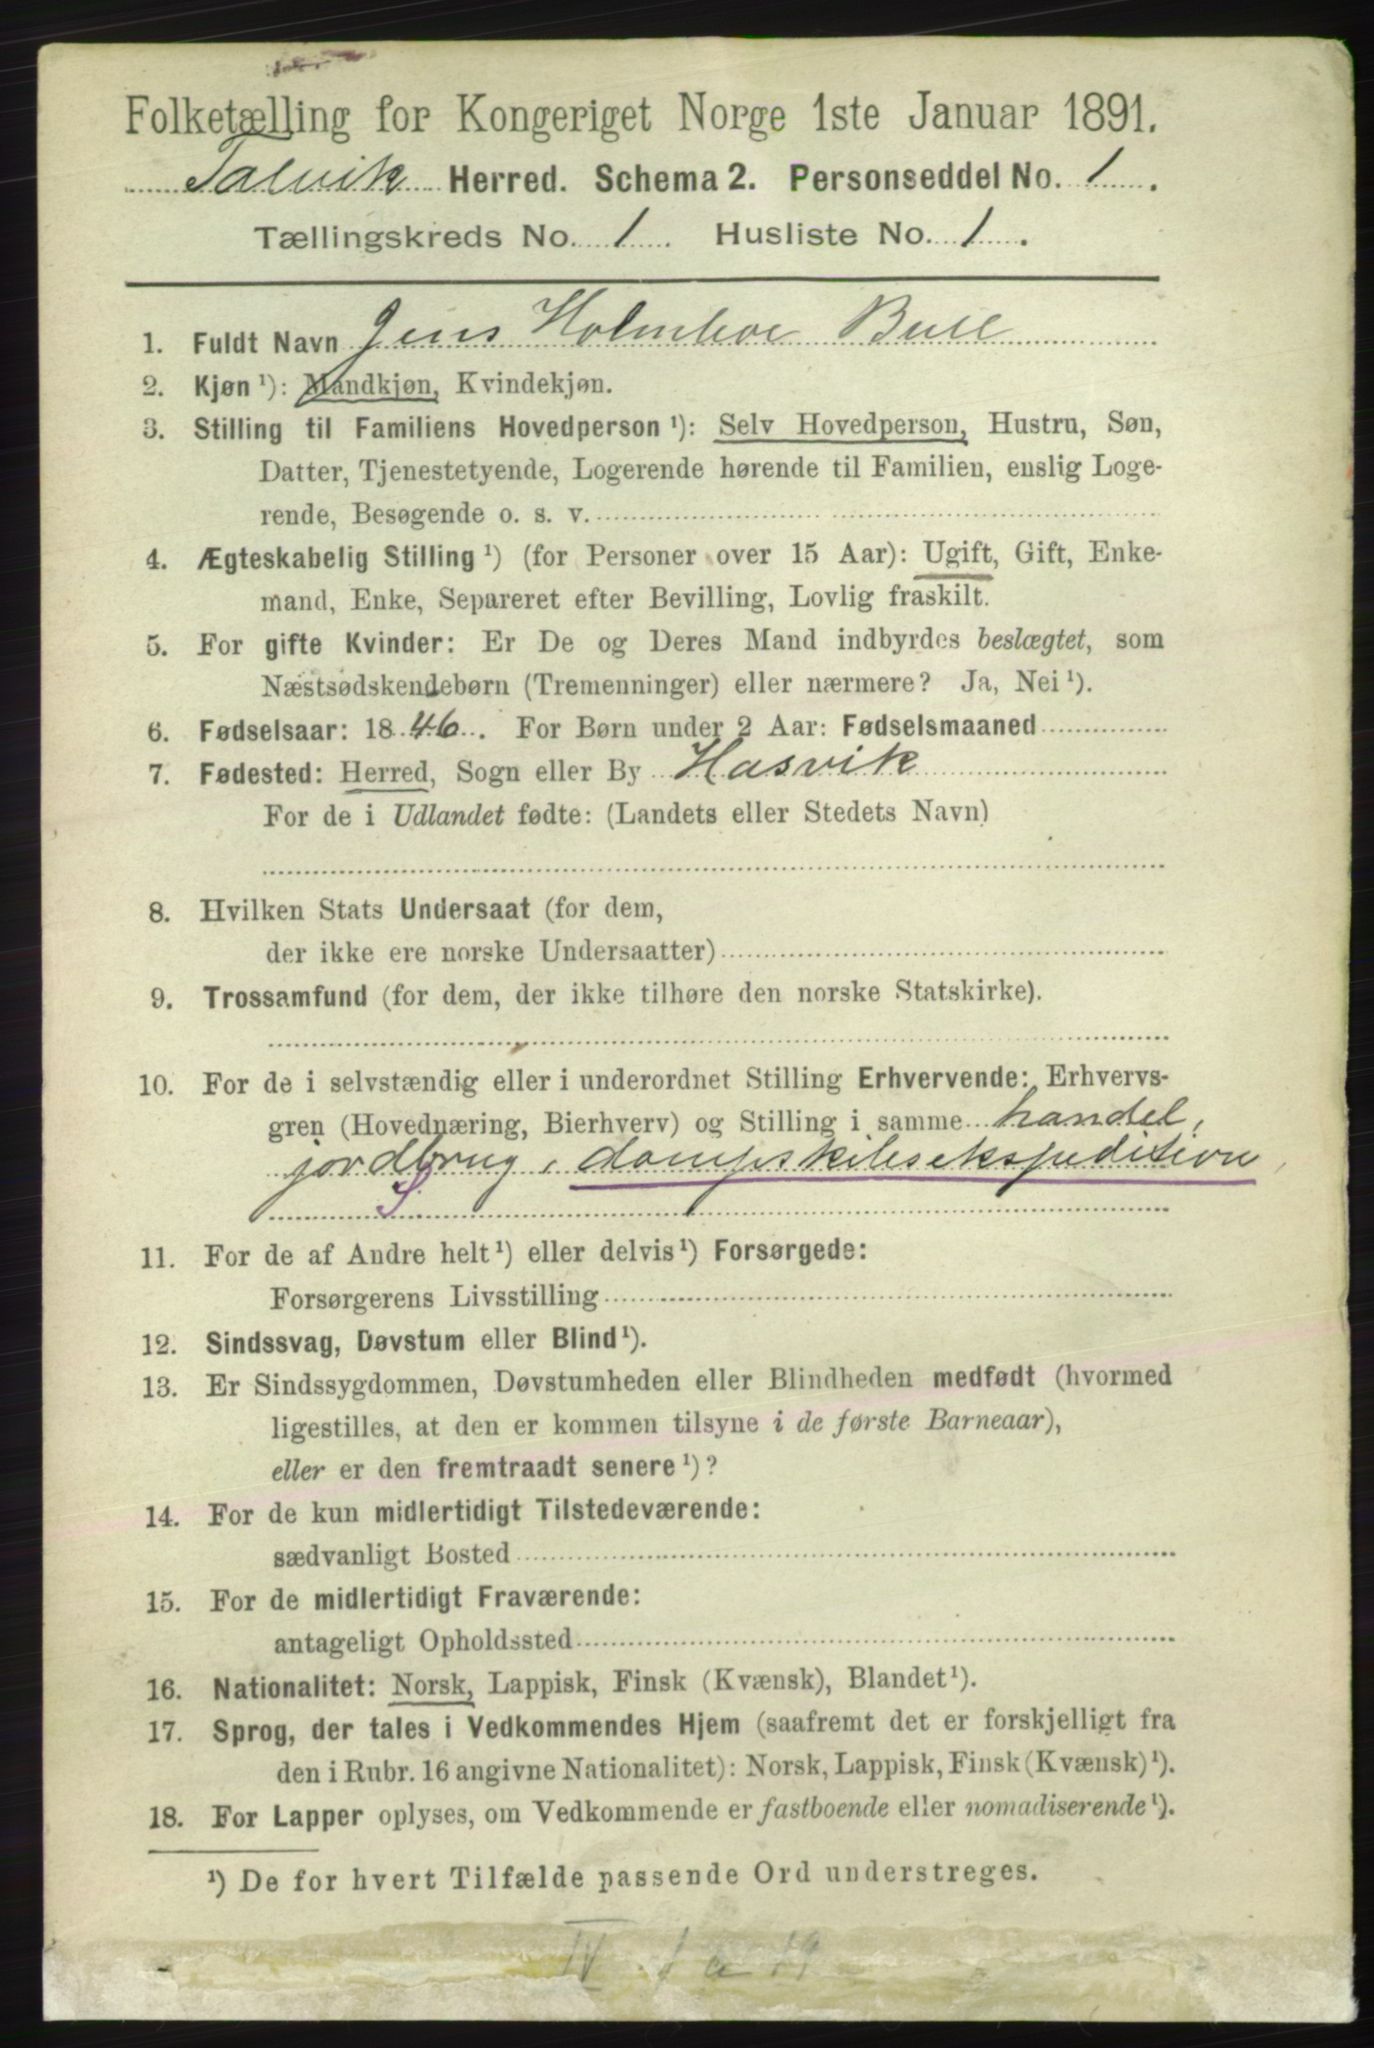 Folketælling for Kongeriget Norge 1ste Januar 1891.
Talvik Herred. Schema 2. Personseddel No. 1.
Tællingskreds No. 1. Husliste No. 1.
1. Fuldt Navn Jens Holmboe Bull
2. Kjøn ¹): Mandkjøn, Kvindekjøn.
3. Stilling til Familiens Hovedperson ¹): Selv Hovedperson, Hustru, Søn,
Datter, Tjenestetyende, Logerende hørende til Familien, enslig Loge-
rende, Besøgende o. s. v.
4. Ægteskabelig Stilling ¹) (for Personer over 15 Aar): Ugift, Gift, Enke-
mand, Enke, Separeret efter Bevilling, Lovlig fraskilt.
5. For gifte Kvinder: Er De og Deres Mand indbyrdes beslægtet, som
Næstsødskendebørn (Tremenninger) eller nærmere? Ja, Nei ¹).
6. Fødselsaar: 1846. For Børn under 2 Aar: Fødselsmaaned
7. Fødested: Herred, Sogn eller By Hasvik
For de i Udlandet fødte: (Landets eller Stedets Navn)
8. Hvilken Stats Undersaat (for dem,
der ikke ere norske Undersaatter)
9. Trossamfund (for dem, der ikke tilhøre den norske Statskirke).
10. For de i selvstændig eller i underordnet Stilling Erhvervende: Erhvervs-
gren (Hovednæring, Bierhverv) og Stilling i samme handel,
jordbrug, dampskibsekspedition
S
11. For de af Andre helt ¹) eller delvis ¹) Forsørgede:
Forsørgerens Livsstilling
12. Sindssvag, Døvstum eller Blind ¹).
13. Er Sindssygdommen, Døvstumheden eller Blindheden medfødt (hvormed
ligestilles, at den er kommen tilsyne i de første Barneaar),
eller er den fremtraadt senere ¹)?
14. For de kun midlertidigt Tilstedeværende:
sædvanligt Bosted
15. For de midlertidigt Fraværende:
antageligt Opholdssted
16. Nationalitet: Norsk, Lappisk, Finsk (Kvænsk), Blandet ¹).
17. Sprog, der tales i Vedkommendes Hjem (saafremt det er forskjelligt fra
den i Rubr. 16 angivne Nationalitet): Norsk, Lappisk, Finsk (Kvænsk) ¹).
18. For Lapper oplyses, om Vedkommende er fastboende eller nomadiserende ¹).
¹) De for hvert Tilfælde passende Ord understreges.
IV 1 a 19